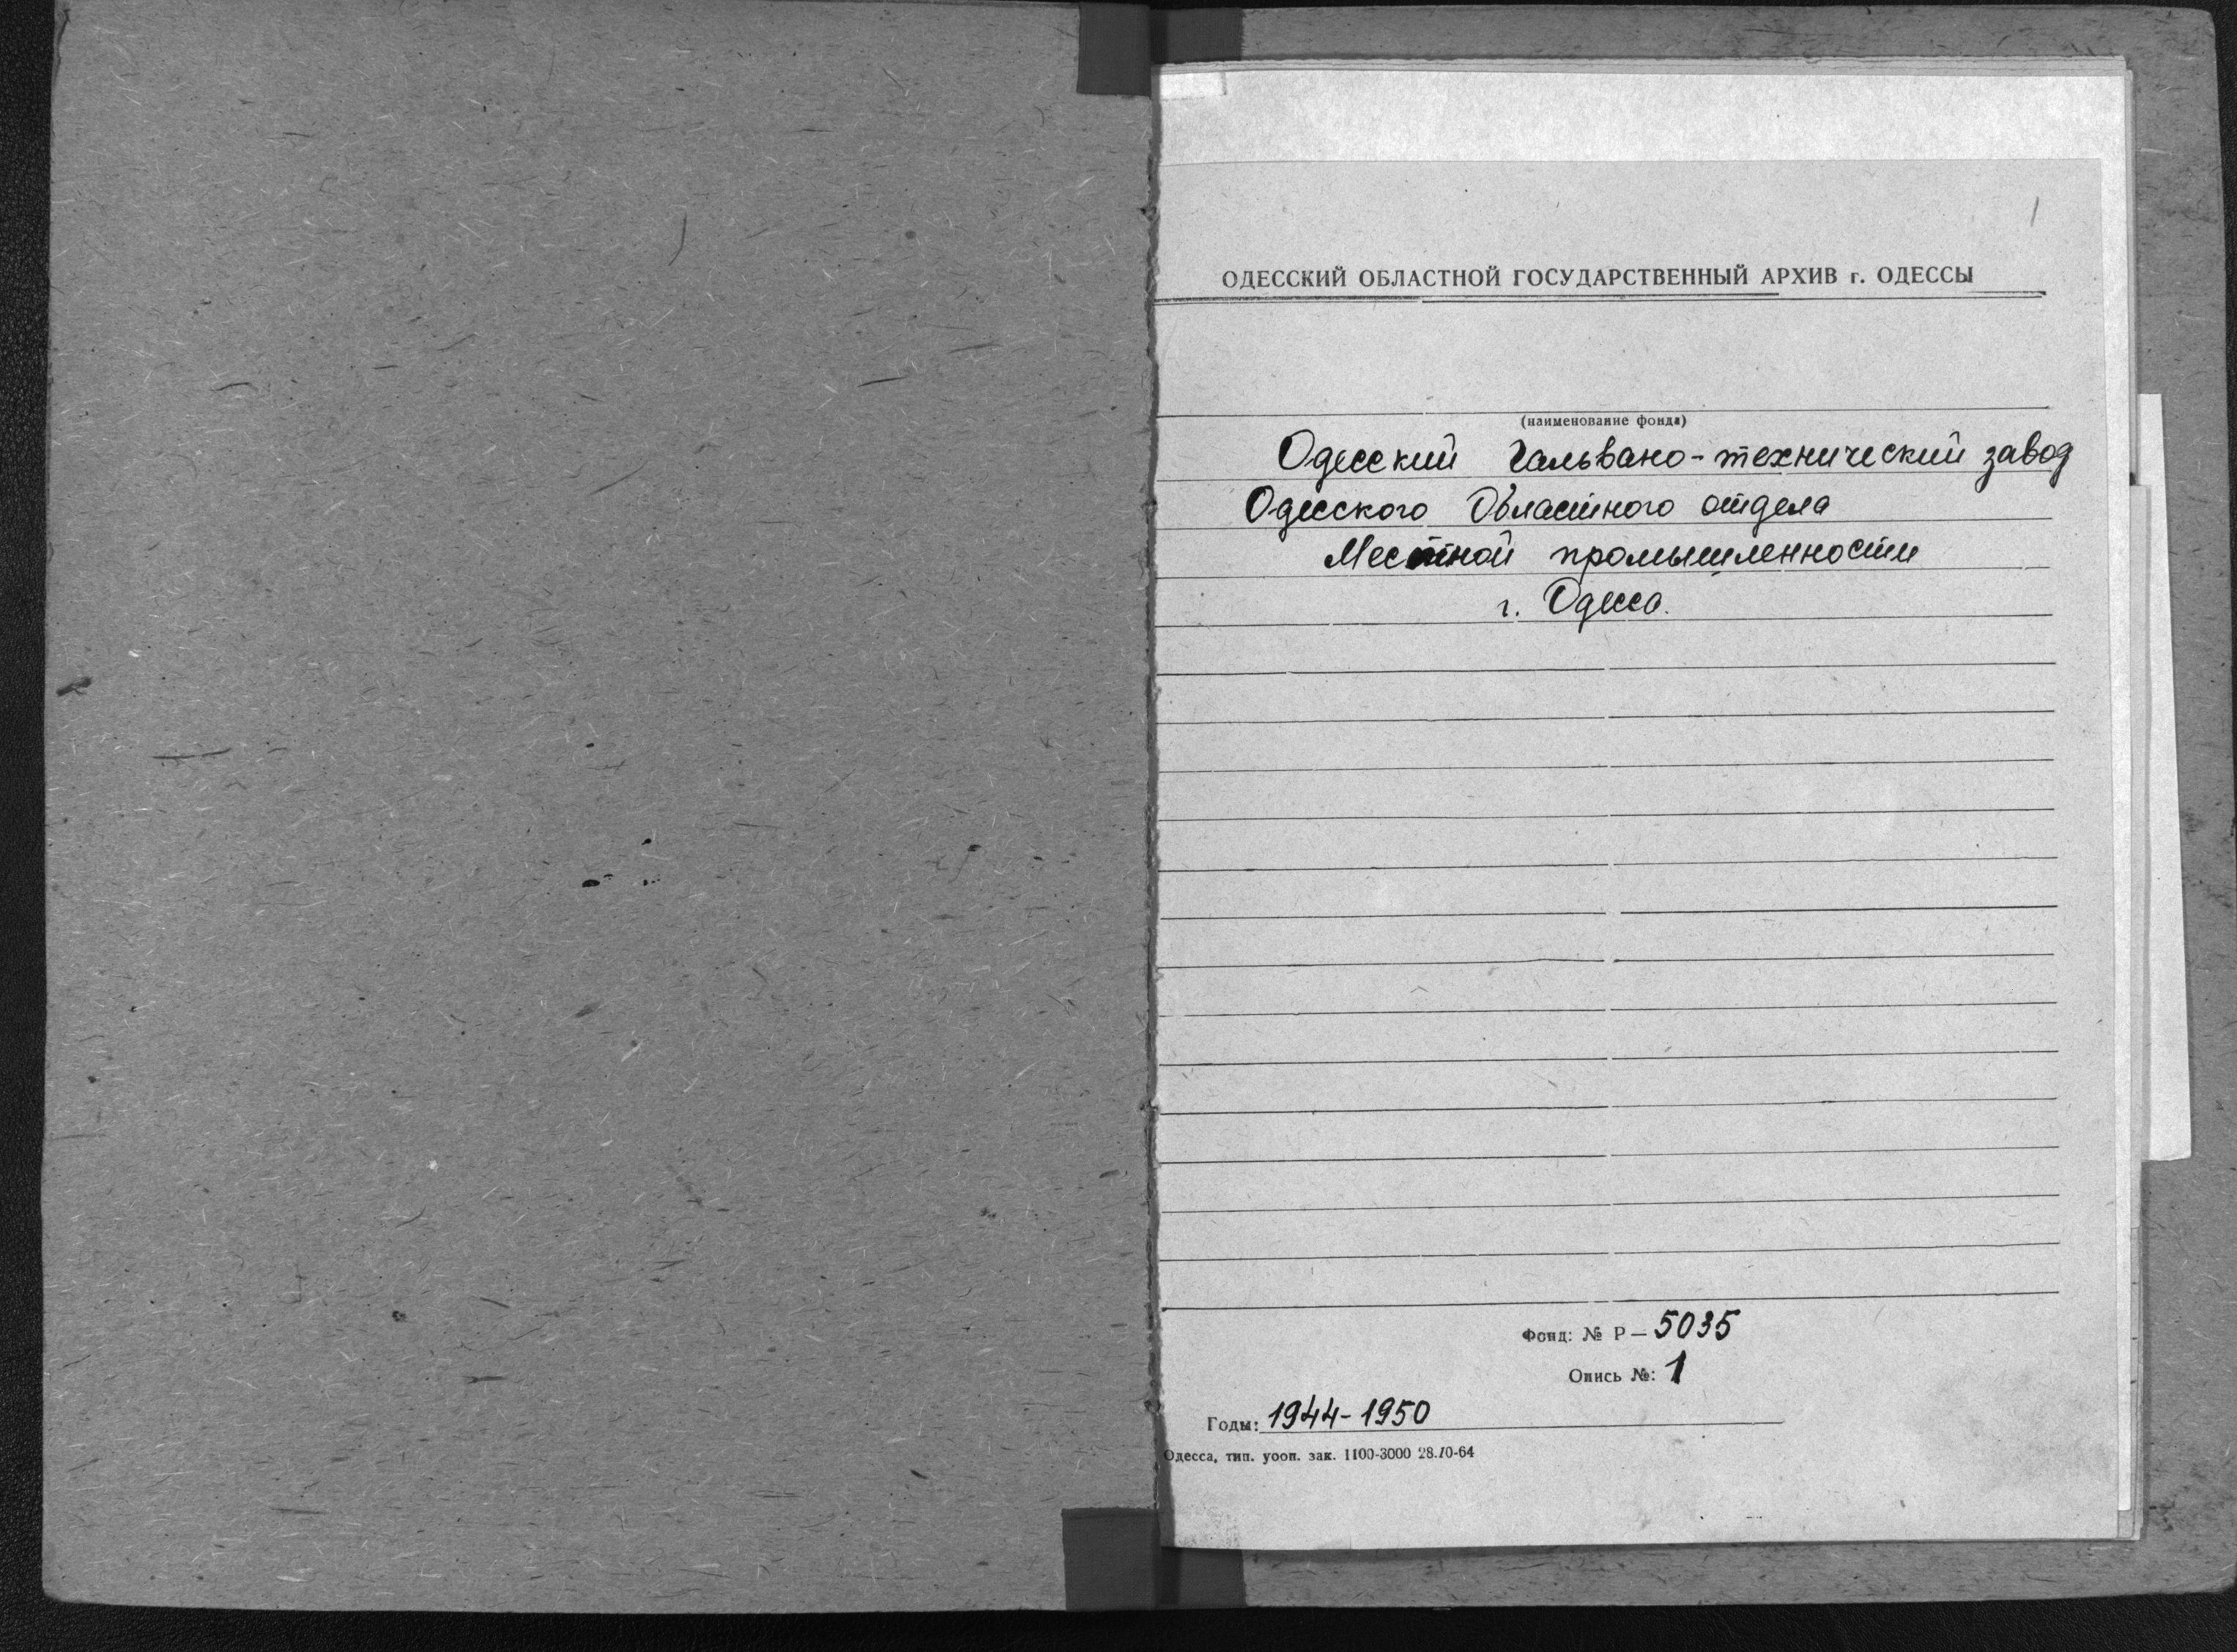 1
ОДЕССКИЙ ОБЛАСТНОЙ ГОСУДАРСТВЕННЫЙ АРХИВ г. ОДЕССЫ
(наименование фонда)
Одесский Гальвано-технический завод
Одесского Областного отдела
Местной промышленности
г. Одесса.
Фонд: № Р—5035
Опись №: 1
Годы: 1944-1950
Одесса, тип. уооп. зак. 1100-3000 28.10-64